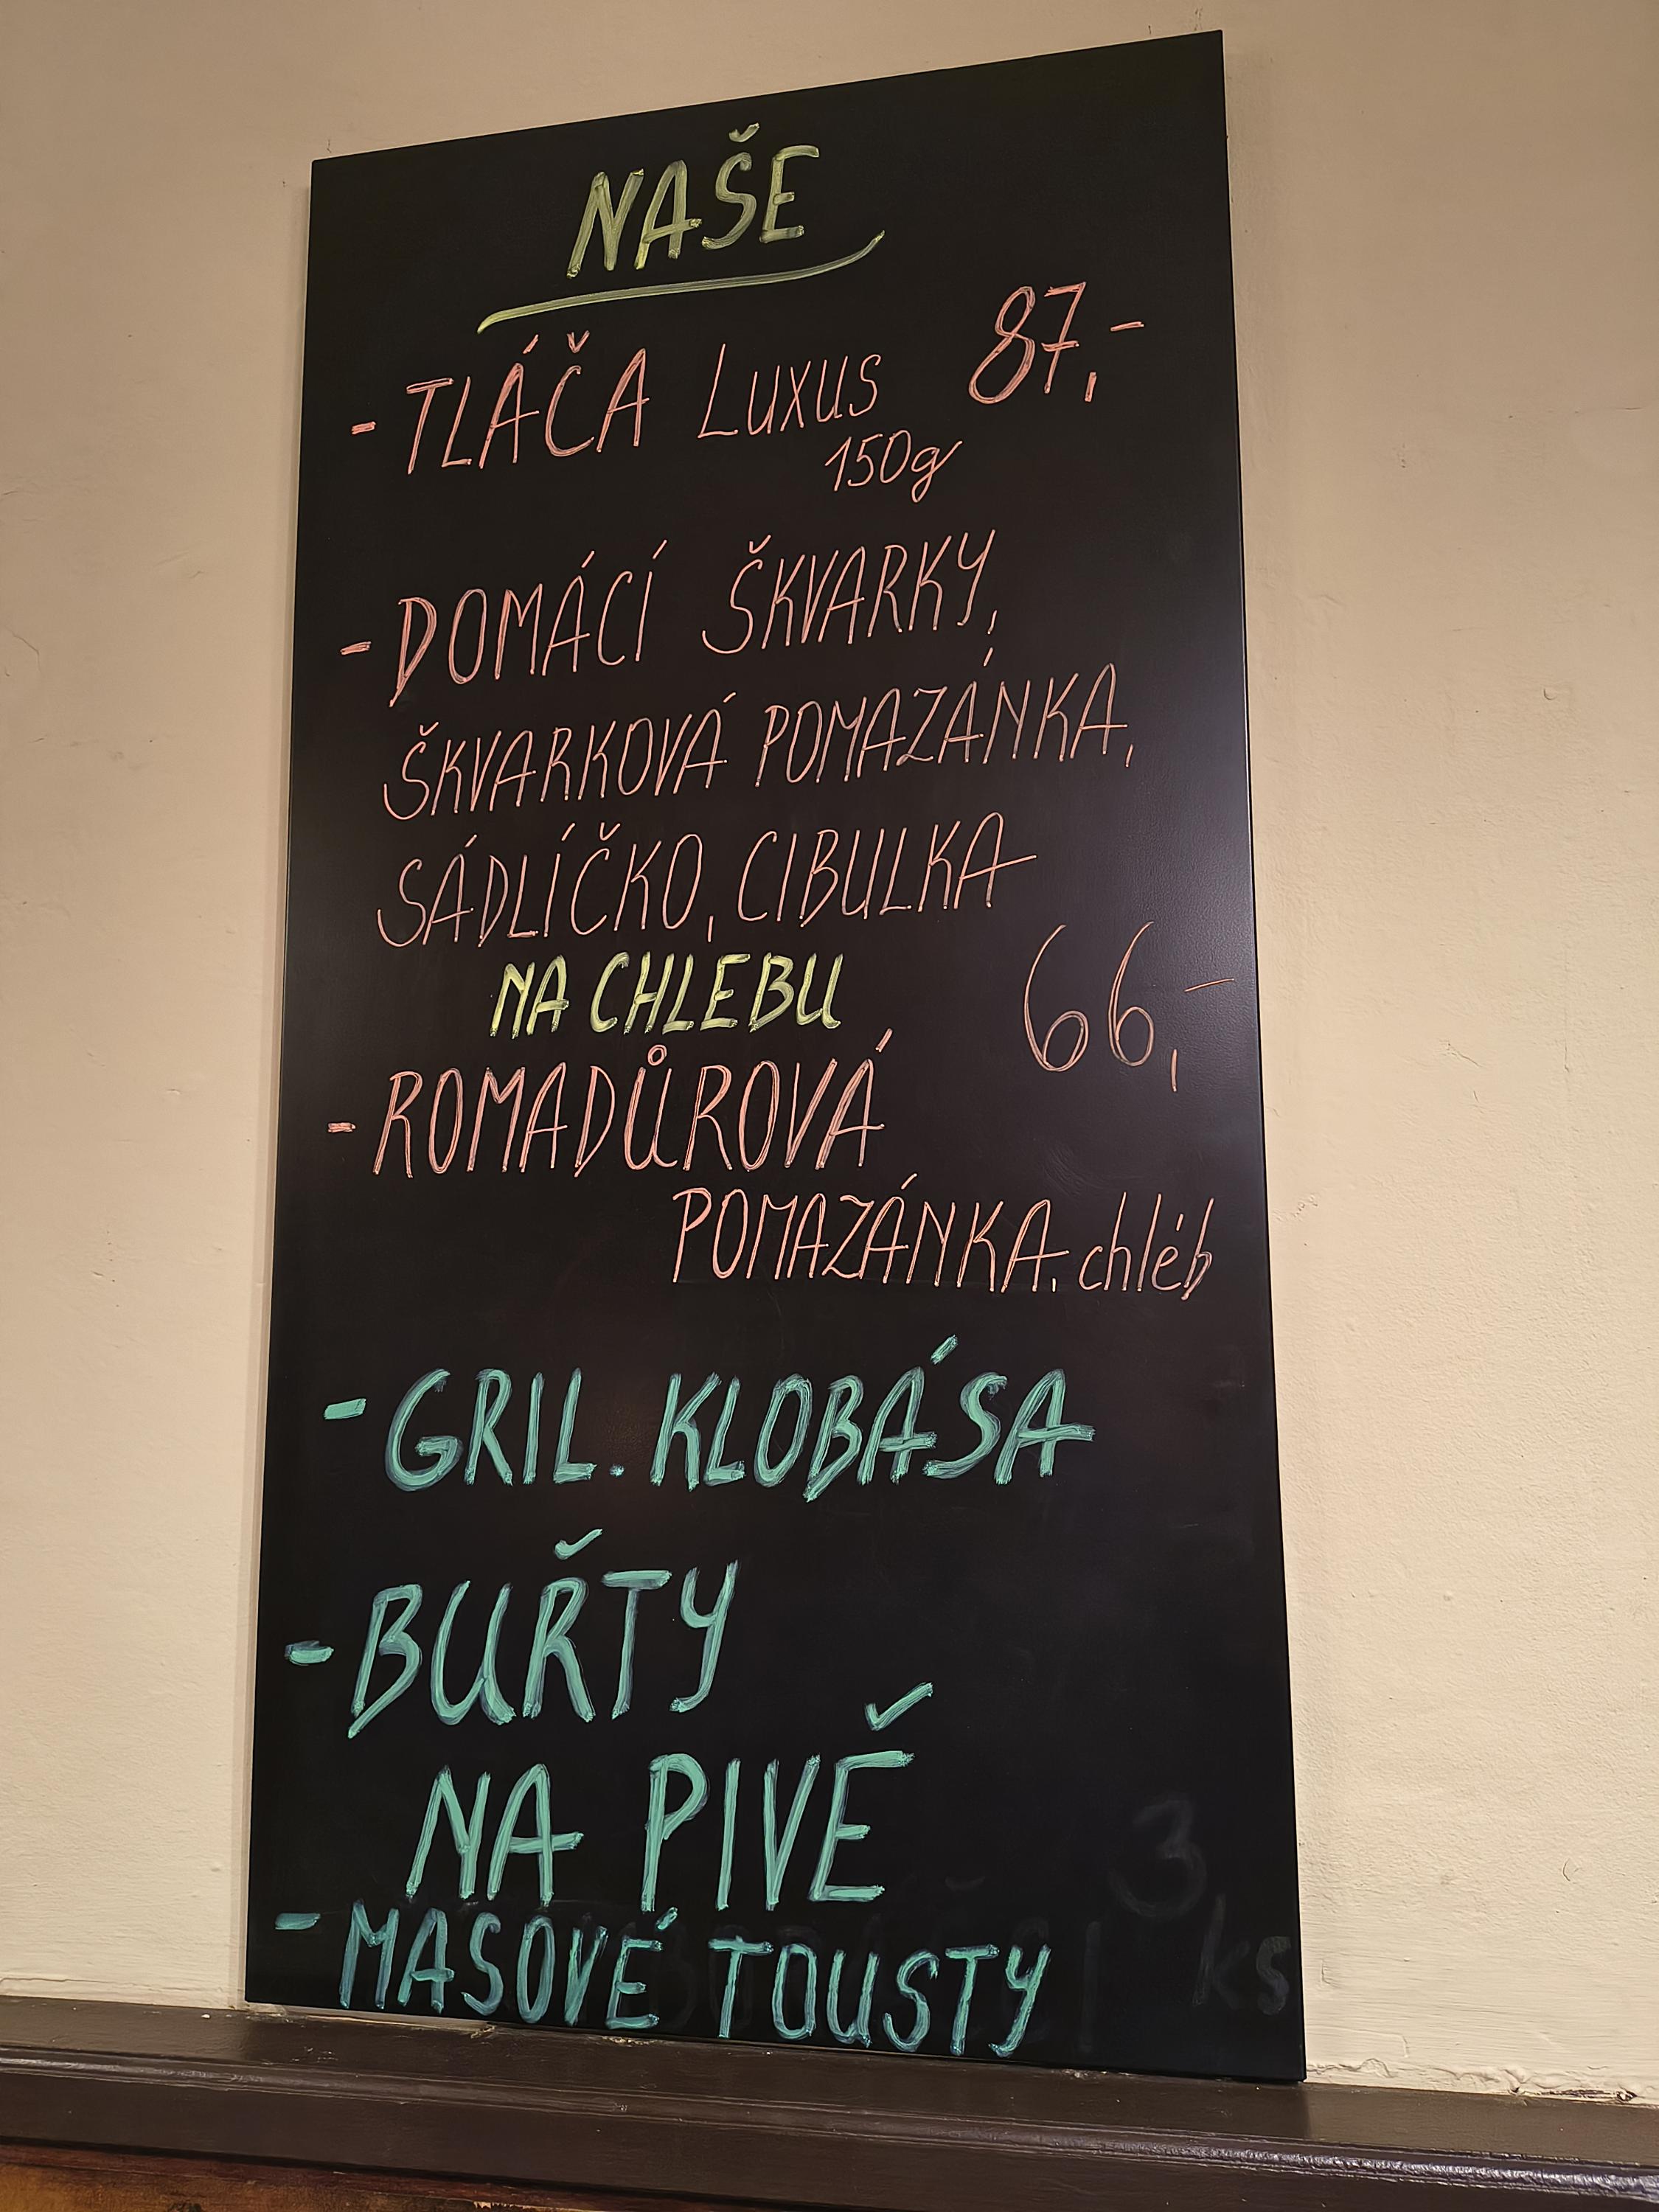 NAŠE
- TLÁČA Luxus 87,-
150g
- DOMÁCÍ ŠKVARKY,
ŠKVARKOVÁ POMAZÁNKA,
SÁDLÍČKO, CIBULKA
NA CHLEBU 66,-
- ROMADŮROVÁ
POMAZÁNKA, chléb
- GRIL. KLOBÁSA
- BUŘTY
NA PIVĚ
- MASOVÉ TOUSTY
3 ks